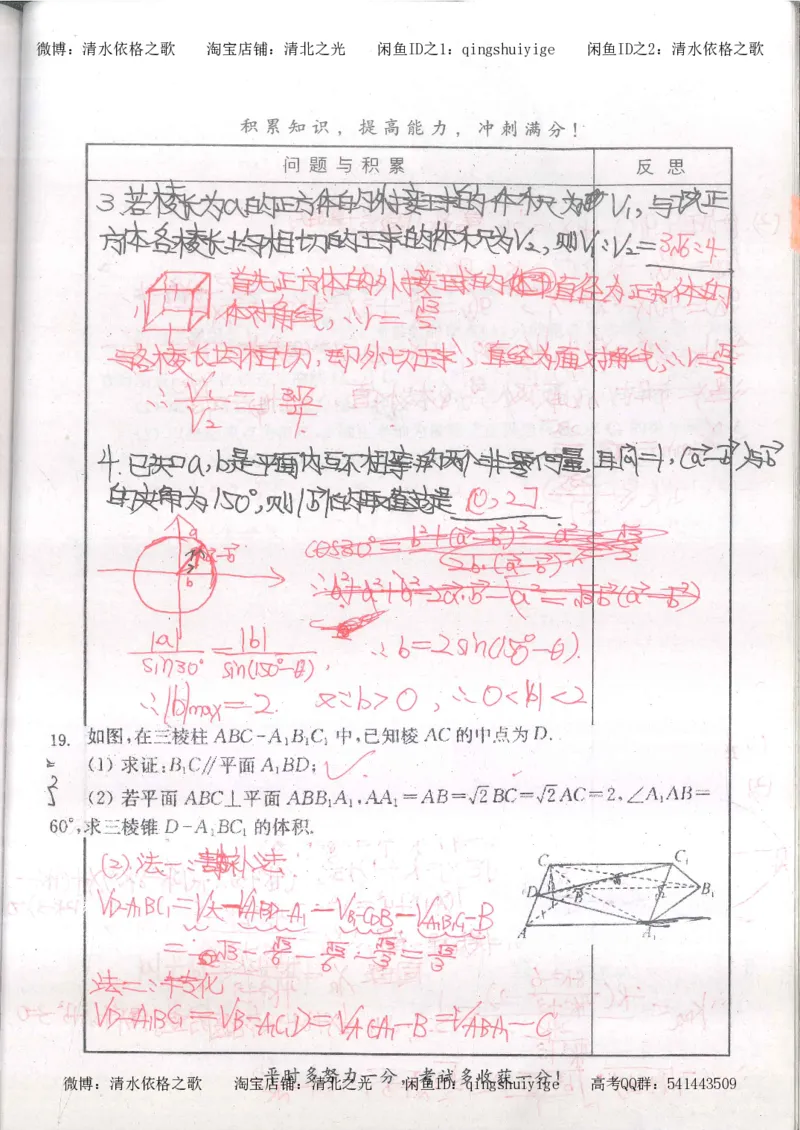 微博：清水依格之歌 淘宝店铺：清北之光 闲鱼ID之1：qingshuiyige 闲鱼ID之2：清水依格之歌
积累知识，提高能力，冲刺满分！
问题与积累 反思
3.若棱长为a的正方体的外接球的体积为V₁,与该正
方体各棱长均相切的球的体积为V₂,则V₁:V₂=3√6:4
首先正方体的外接球的直径为正方体的
体对角线,∴r=√3/2
与各棱长均相切,即外切球,直径为面对角线,∴r=√2/2
∴V₁/V₂=3√6/4
4.已知a,b是平面内互不相等的两个非零向量.且|a|=1,(a-b)与b
的夹角为150°,则|b|的取值范围是(0,2].
a
a-b
b
cos30°=
|a|/sin30°=|b|/sin(150°-θ),
∴b=2sin(150°-θ).
∴|b|max=2. 又∵b>0,∴0<|b|<2
19. 如图,在三棱柱ABC-A₁B₁C₁中,已知棱AC的中点为D.
(1)求证:B₁C∥平面A₁BD;
(2)若平面ABC⊥平面ABB₁A₁,AA₁=AB=√2BC=√2AC=2,∠A₁AB=
60°,求三棱锥D-A₁BC₁的体积.
(2)法一:割补法
C C₁
D B B₁
A A₁
法二:转化
平时多努力一分,考试多收获一分!
微博：清水依格之歌 淘宝店铺：清北之光 闲鱼ID：qingshuiyige 高考QQ群：541443509